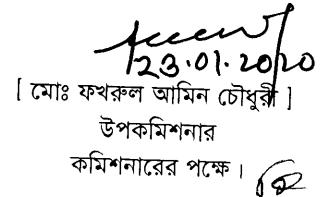 23.01.2020
[ মোঃ ফখরুল আমিন চৌধুরী ]
উপকমিশনার
কমিশনারের পক্ষে।